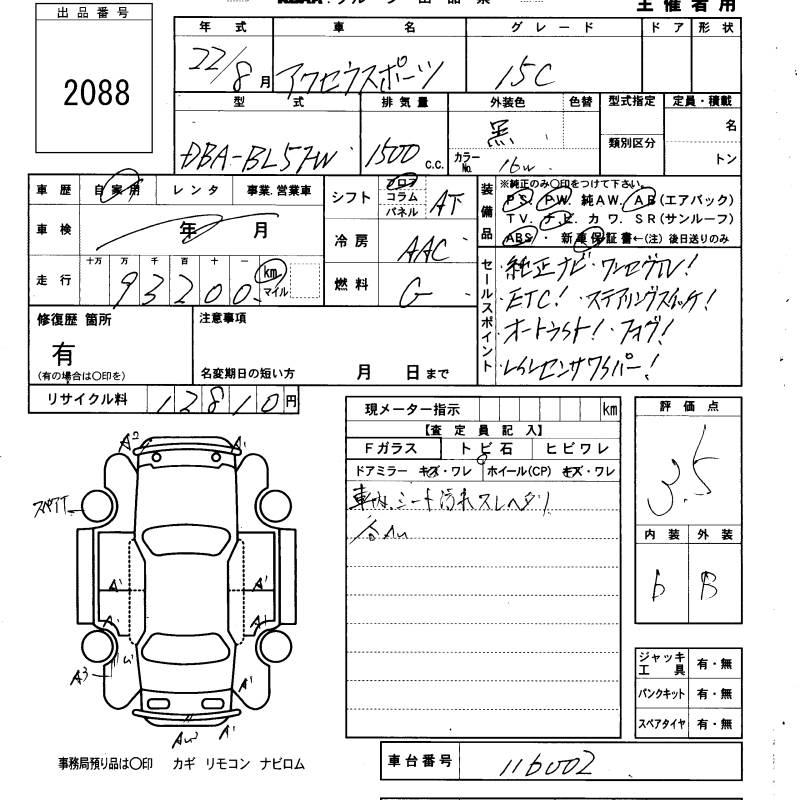 出品番号
2088
主催者用
年式 車名 グレード ドア 形状
22/8月 アクセラスポーツ 15C
型式 排気量 外装色 色替 型式指定 定員・積載
DBA-BL5FW 1500 c.c. 黒 カラーNo. 16W 類別区分 名 トン
車歴 自家用 レンタ 事業.営業車
車検 年 月
走行 十万 万 千 百 十 一
93200 km マイル
シフト フロア コラム パネル AT
冷房 AAC
燃料 G
装備品 ※純正のみ○印をつけて下さい。
PS. PW. 純AW. AB(エアバック)
TV. ナビ. カワ. SR(サンルーフ)
ABS ・ 新車保証書←(注) 後日送りのみ
セールスポイント
・純正ナビ・ワンセグTV!
・ETC! ・ステアリングスイッチ!
・オートライト! ・フォグ!
・レインセンサワイパー!
修復歴 箇所
有
(有の場合は○印を)
注意事項
名変期日の短い方 月 日まで
リサイクル料 12810円
現メーター指示 km
【査定員記入】
Fガラス トビ石 ヒビワレ
ドアミラー キズ・ワレ ホイール(CP) キズ・ワレ
車内、シート汚れスレヘタリ
各AU
評価点
3.5
内装 外装
b B
A2 A1
スペアT
A1 A1
A1 A1
A3 A1
AW A1
ジャッキ工具 有・無
パンクキット 有・無
スペアタイヤ 有・無
事務局預り品は○印 カギ リモコン ナビロム
車台番号 116002